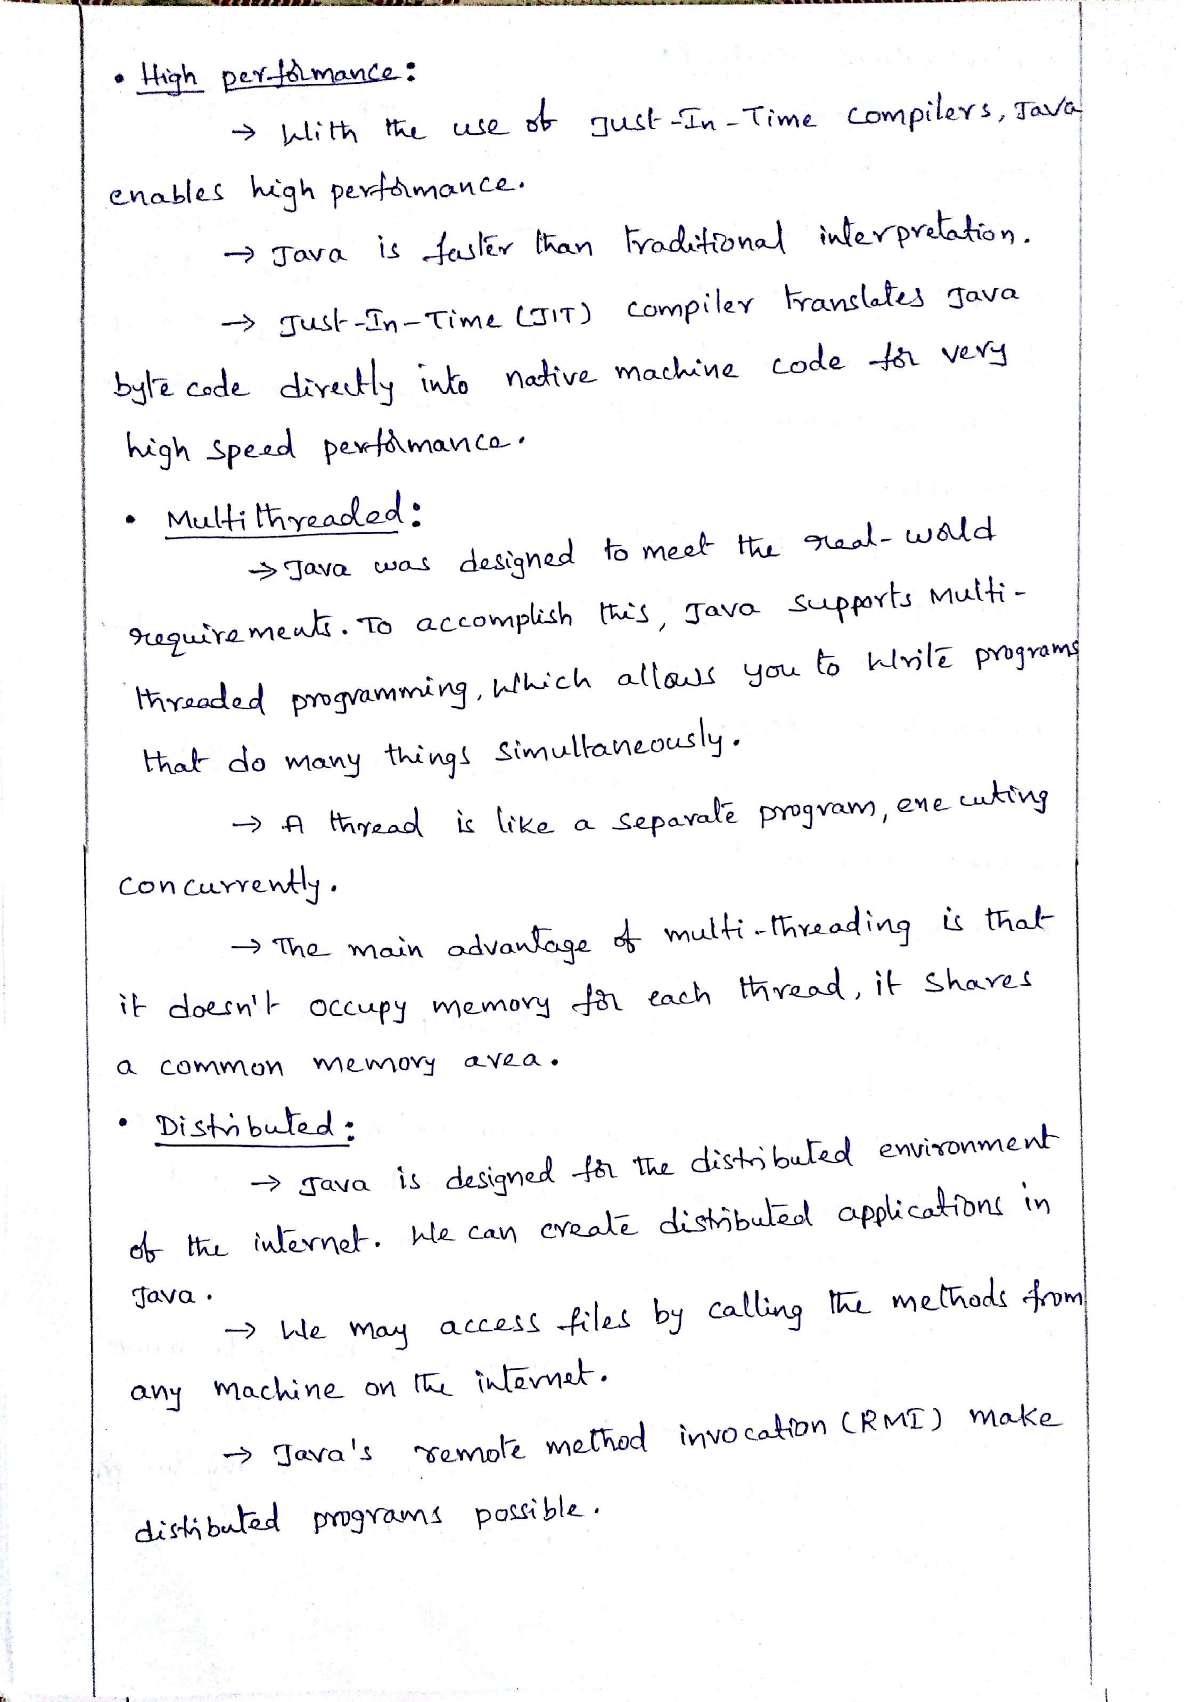 • High performance:
→ With the use of Just-In-Time compilers, Java
enables high performance.
→ Java is faster than traditional interpretation.
→ Just-In-Time (JIT) compiler translates Java
byte code directly into native machine code for very
high speed performance.
• Multithreaded:
→ Java was designed to meet the real-world
requirements. To accomplish this, Java supports Multi-
threaded programming, which allows you to write programs
that do many things simultaneously.
→ A thread is like a separate program, executing
concurrently.
→ The main advantage of multi-threading is that
it doesn't occupy memory for each thread, it shares
a common memory area.
• Distributed:
→ Java is designed for the distributed environment
of the internet. We can create distributed applications in
Java.
→ We may access files by calling the methods from
any machine on the internet.
→ Java's remote method invocation (RMI) make
distributed programs possible.